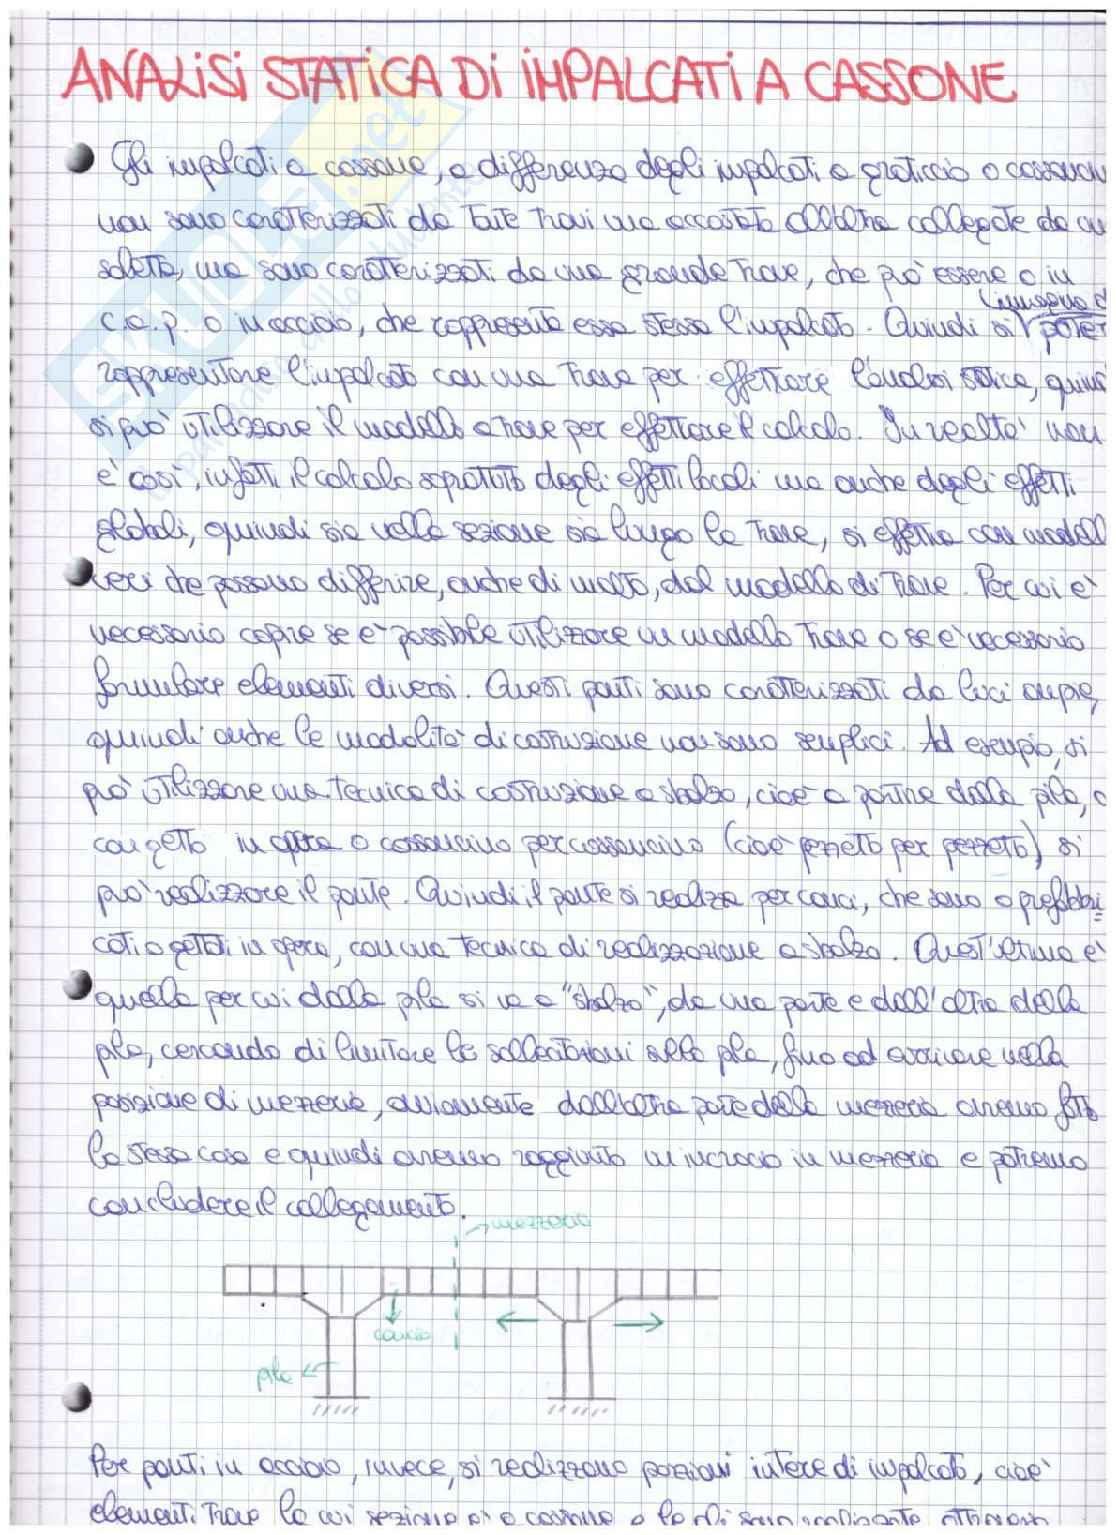 ANALISI STATICA DI IMPALCATI A CASSONE
Gli impalcati a cassone, a differenza degli impalcati a graticcio o
non sono caratterizzati da tante travi una accostata all'altra collegate da
soletta, ma sono caratterizzati da una grande trave, che può essere o in
c.a.p. o in acciaio, che rappresenta essa stessa l'impalcato. Quindi si
rappresentare l'impalcato con una trave per effettuare l'analisi statica,
si può utilizzare il modello a trave per effettuare il calcolo. In realtà non
è così, infatti il calcolo soprattutto degli effetti locali ma anche degli effetti
globali, quindi sia nella sezione sia lungo la trave, si effettua con
veri che possono differire, anche di molto, dal modello di trave. Per cui è
necessario capire se è possibile utilizzare un modello trave o se è necessario
formulare elementi diversi. Questi ponti sono caratterizzati da luci ampie,
quindi anche le modalità di costruzione non sono semplici. Ad esempio, si
può utilizzare una tecnica di costruzione a sbalzo, cioè a partire dalla pila, o
con getto in opera o cassoncino per cassoncino (cioè pezzetto per pezzetto) si
può realizzare il ponte. Quindi il ponte si realizza per conci, che sono o prefabbri=
cati o gettati in opera, con una tecnica di realizzazione a sbalzo. Quest'ultima è
quella per cui dalla pila si va a "sbalzo", da una parte e dall'altra della
pila, cercando di limitare le sollecitazioni alla pila, fino ad arrivare nella
posizione di mezzeria, ovviamente dall'altra parte della mezzeria avremo
la stessa cosa e quindi avremo raggiunto un incrocio in mezzeria e potremo
concludere il collegamento.
mezzeria
concio
pila
Per ponti in acciaio, invece, si realizzano porzioni intere di impalcato, cioè
elementi trave la cui sezione è a cassone